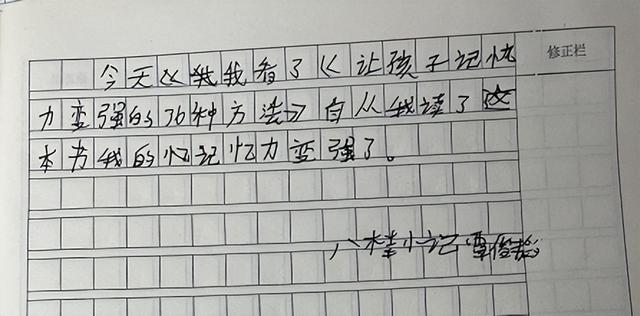 今天《我我看了《让孩子记忧
修正栏
力变强的36种方法》自从我读了这
本书我的忆记忆力变强了。
小记